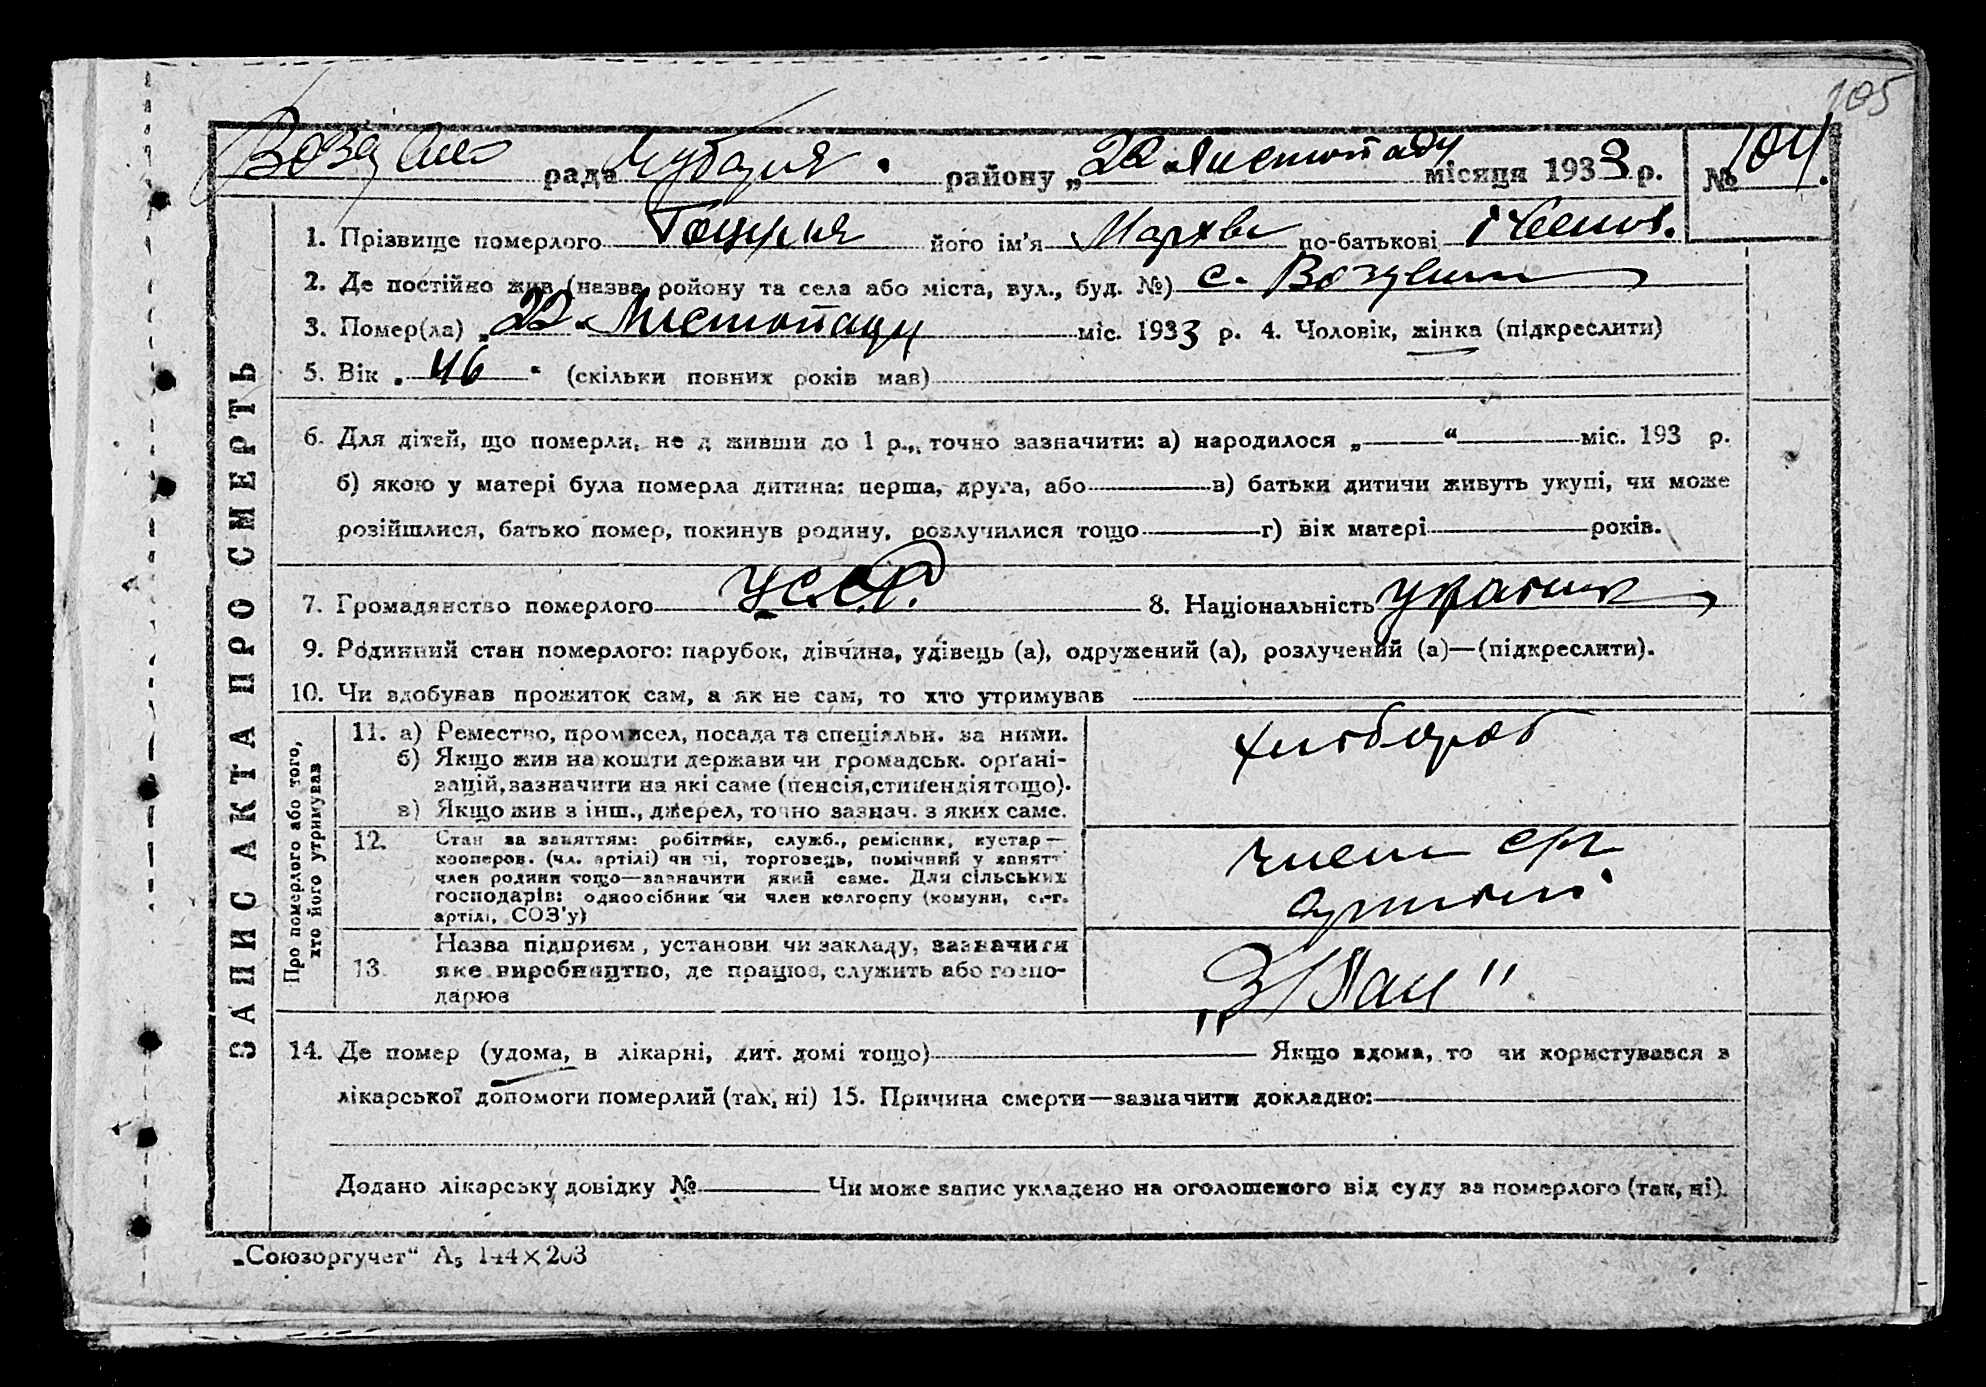 105
рада района „22" Листопаду місяця 1933 р. № 104.
ЗАПИС АКТА ПРО СМЕРТЬ
1. Прізвище померлого його ім'я по-батькові
2. Де постійно жив (назва ройону та села або міста, вул., буд. №) с.
3. Помер(ла) „22" Листопаду міс. 1933 р. 4. Чоловік, жінка (підкреслити)
5. Вік „46" (скільки повних років мав)
6. Для дітей, що померли, не д живши до 1 р., точно зазначити: а) народилося „ “ міс. 193 р.
б) якою у матері була померла дитина: перша, друга, або в) батьки дитичи живуть укупі, чи може
розійшлися, батько помер, покинув родину, розлучилися тощо г) вік матері років.
7. Громадянство померлого УССР. 8. Національність
9. Родинний стан померлого: парубок, дівчина, удівець (а), одружений (а), розлучений (а)—(підкреслити).
10. Чи здобував прожиток сам, а як не сам, то хто утримував
Про померлого або того,
хто його утримував
11. а) Ремество, промисел, посада та спеціяльн. за ними.
б) Якщо жив на кошти держави чи громадськ. орґані-
зацій, зазначити на які саме (пенсія, стипендія тощо).
в) Якщо жив з інш., джерел, точно зазнач. з яких саме.
хлібороб
12. Стан за заняттям: робітник, служб., ремісник, кустар—
кооперов. (чл. артілі) чи ні, торговець, помічний у занятт
член родини тощо—зазначити який саме. Для сільських
господарів: одноосібник чи член колгоспу (комуни, с.-г.
артілі, СОЗ'у)
член
13. Назва підприєм, установи чи закладу, зазначити
яке виробництво, де працює, служить або госпо-
дарює
14. Де помер (удома, в лікарні, дит. домі тощо) Якщо вдома, то чи користувався з
лікарської допомоги померлий (так, ні) 15. Причина смерти—зазначити докладно:
Додано лікарську довідку № Чи може запис укладено на оголошеного від суду за померлого (так, ні).
„Союзоргучет“ А5 144×203